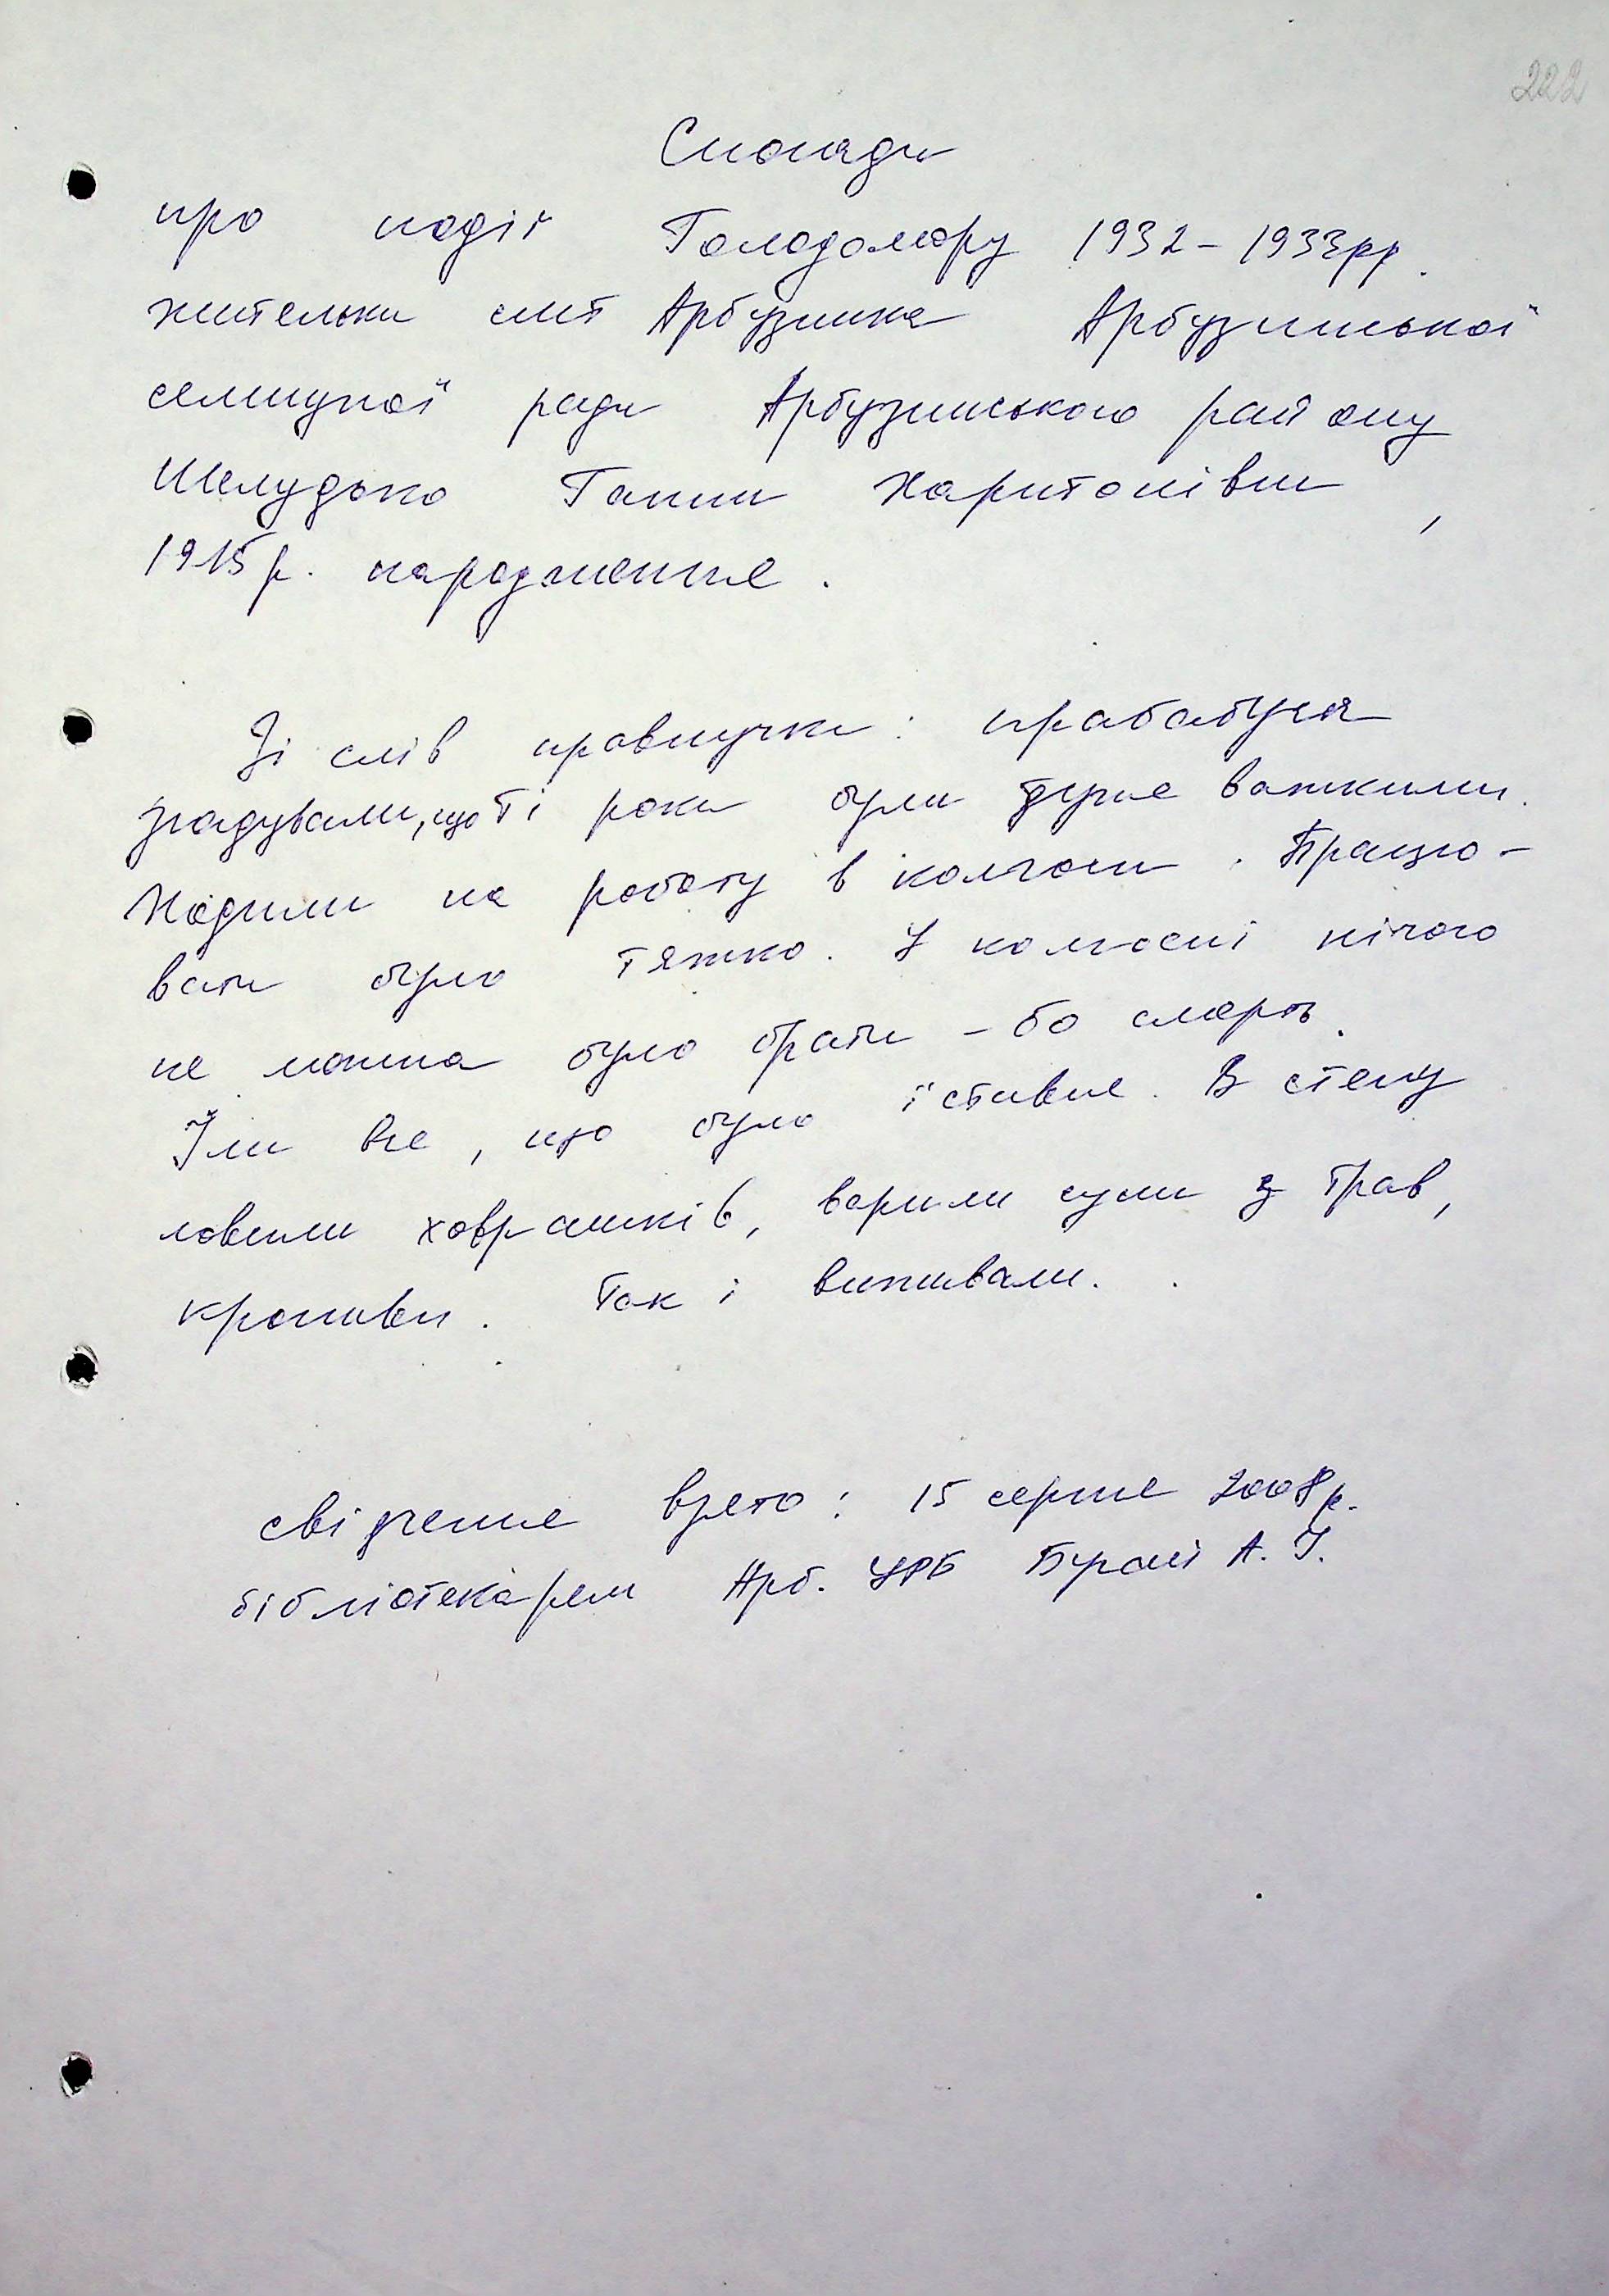 222
Спогади
про події Голодомору 1932-1933рр.
жительки смт Арбузинка Арбузинської
селищної ради Арбузинського району
Шелудько Ганни Харитонівни,
1915р. народження.
Зі слів правнучки: прабабуся
згадували, що ті роки були дуже важкими.
Ходили на роботу в колгосп. Працю-
вати було тяжко. У колгоспі нічого
не можна було брати - бо смерть.
Їли все, що було їстивне. В степу
ловили ховрашків, варили супи з трав,
кропиви. Так і виживали.
свідчення взято: 15 серпня 2008р.
бібліотекарем Арб. ЦРБ А. І.